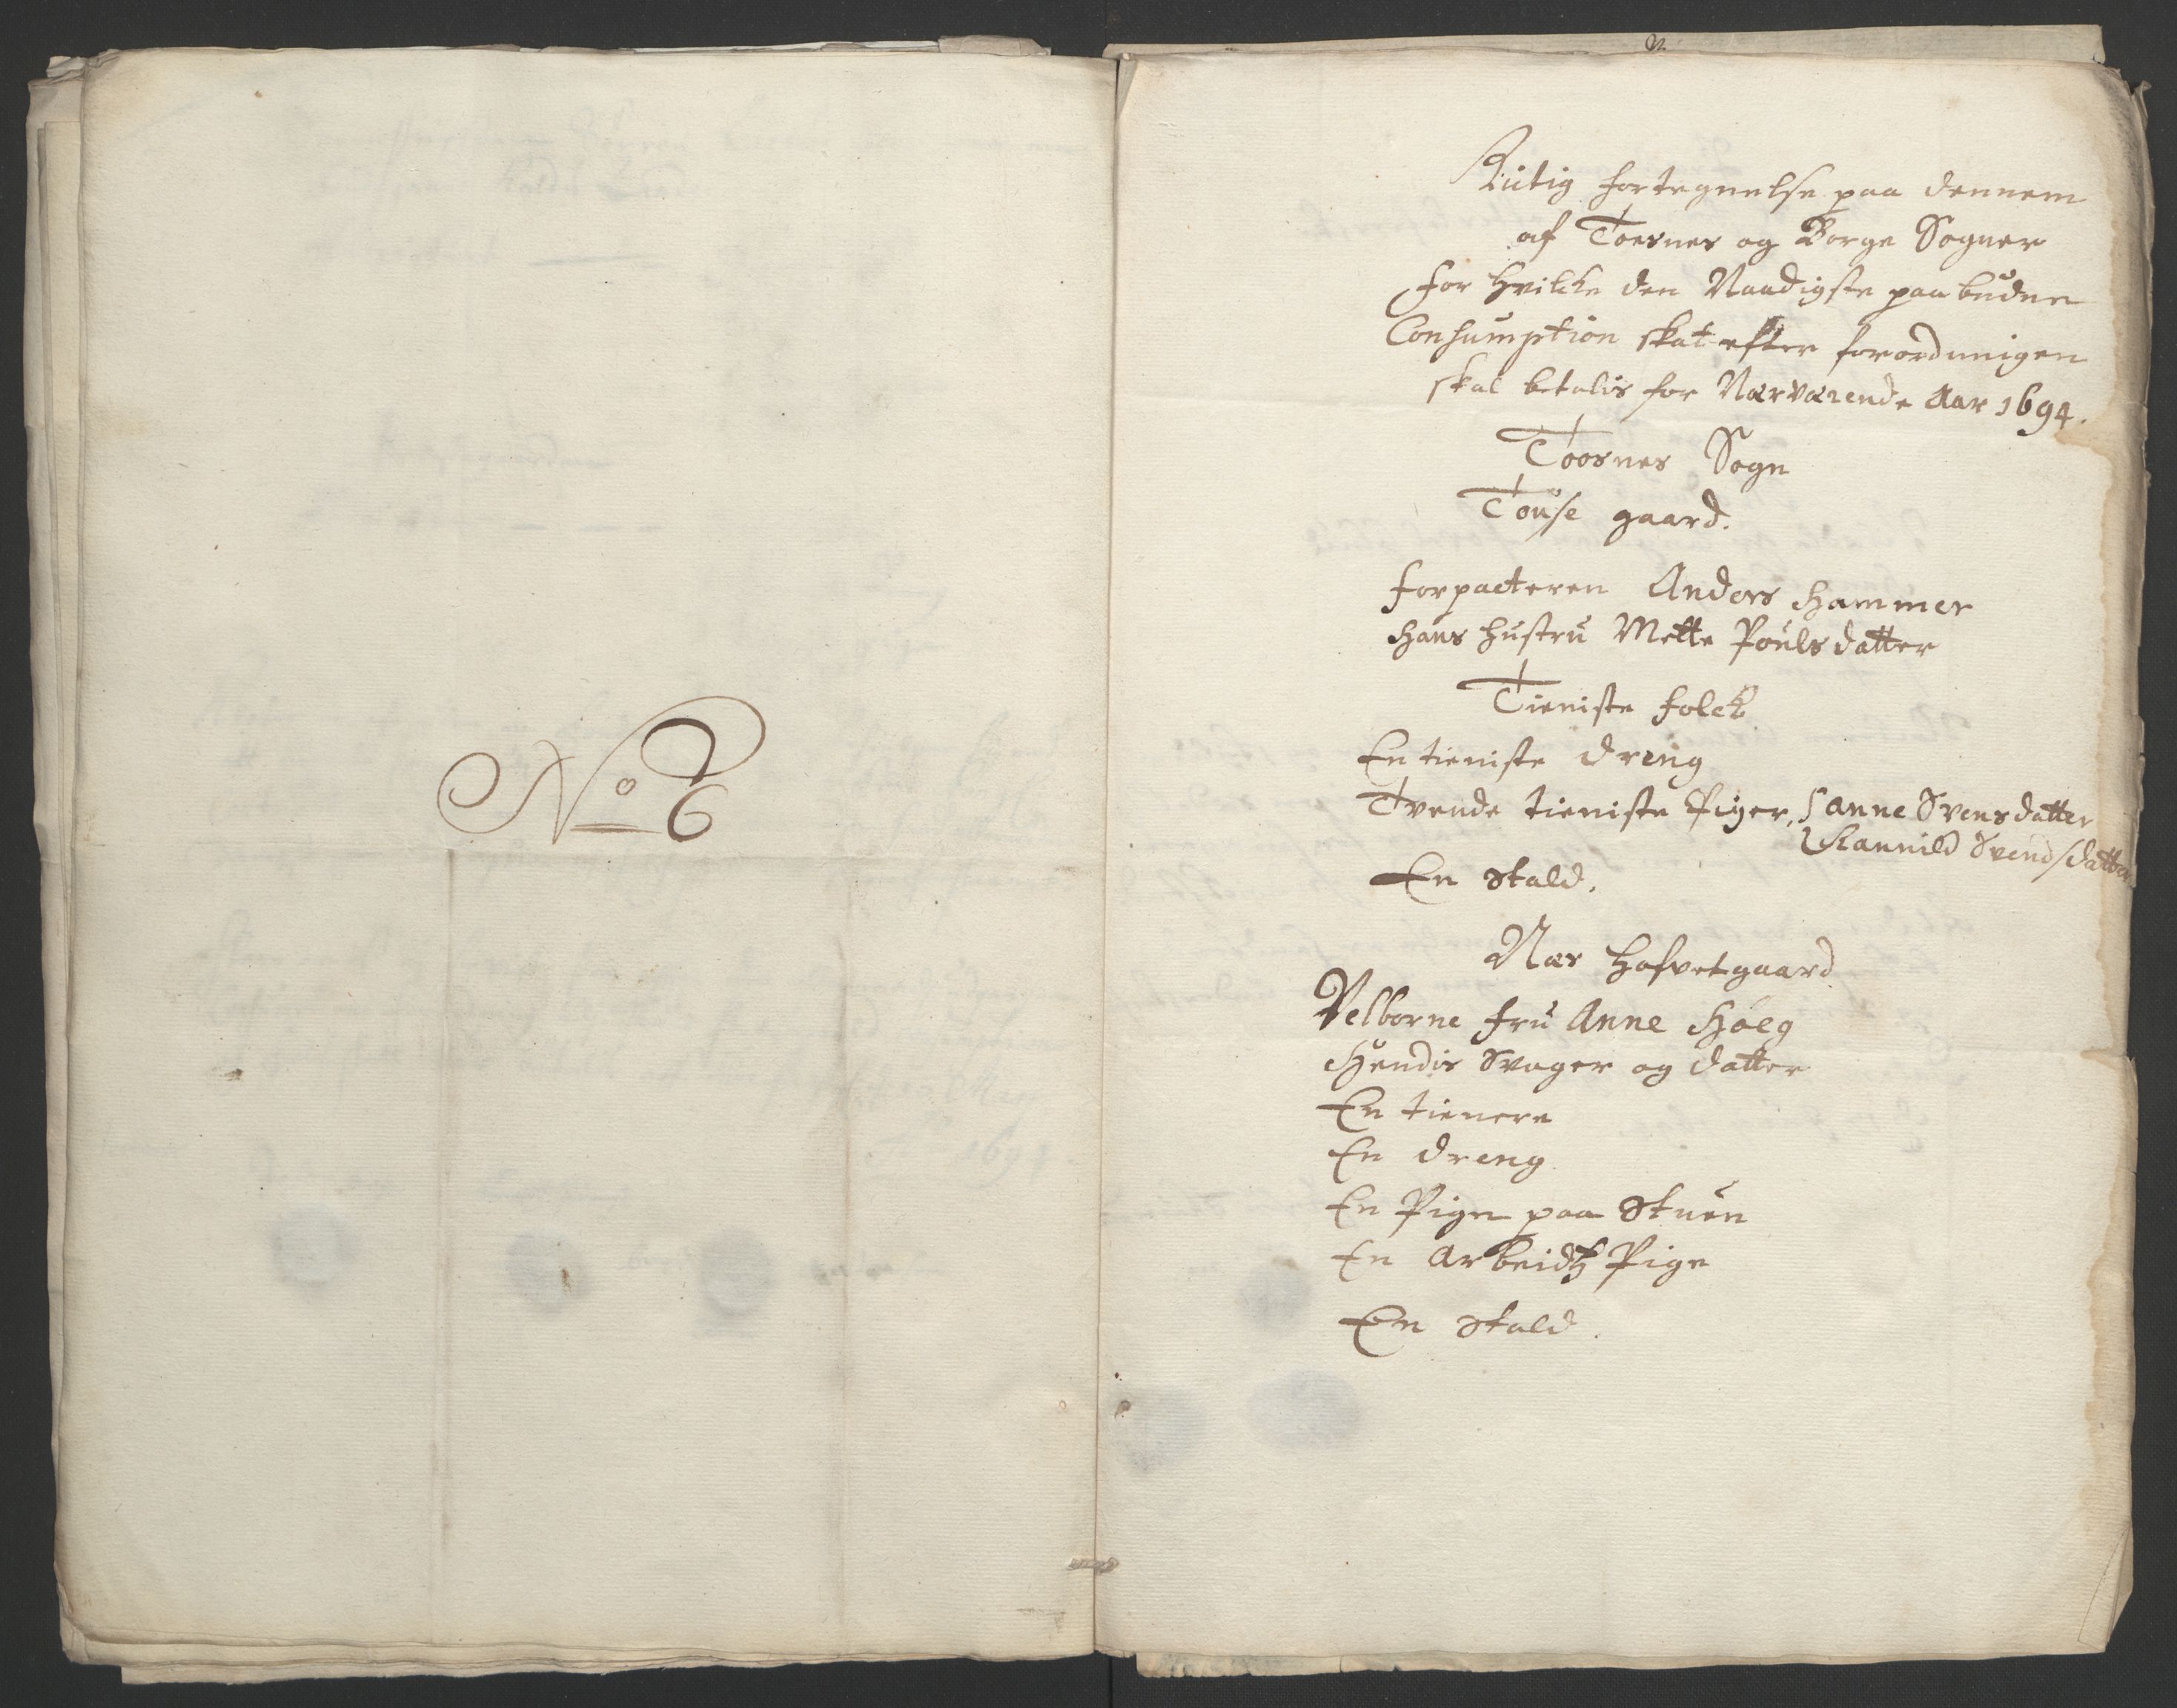 No 6
Rictig fortegnelse paa dennem
af Toesnes og Borge Sogner
for hvilcke den Naadigste paabudne
Consumption skat efter forordningen
skal betalis for Nærværende Aar 1694.
Toosnes Sogn
Touse gaard.
forpacteren Anders Hammer
Hans hustru Mette Pouls datter
Tieniste folck
En tieniste dreng
Tvende tieniste Piger, Anne Svensdatter
Rannild Svendsdatter
En Stald.
Nes hofvetgaard
Velborne fru Anne Høeg
Hendis Svager og datter
En tienere
En dreng
En Pige paa Stuen
En Arbeidtz Pige
En Stald.